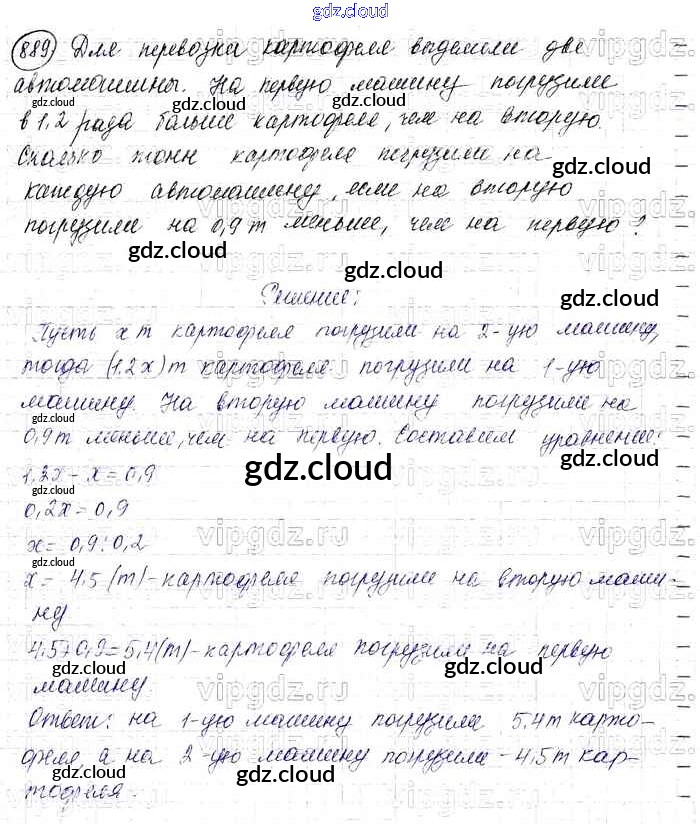 gdz.cloud
889) Для перевозки картофеля выделили две
автомашины. На первую машину погрузили
в 1,2 раза больше картофеля, чем на вторую.
Сколько тонн картофеля погрузили на
каждую автомашину, если на вторую
погрузили на 0,9 т меньше, чем на первую?
Решение:
Пусть x т картофеля погрузили на 2-ую машину,
тогда (1.2x) т картофеля погрузили на 1-ую
машину. На вторую машину погрузили на
0,9 т меньше, чем на первую. Составим уравнение:
1,2x - x = 0,9
0,2x = 0,9
x = 0,9 : 0,2
x = 4.5 (т) - картофеля погрузили на вторую маши-
ну
4.5+0,9=5,4(т) - картофеля погрузили на первую
машину.
Ответ: на 1-ую машину погрузила 5.4т карто-
феля а на 2-ую машину погрузила - 4,5т кар-
тофеля.